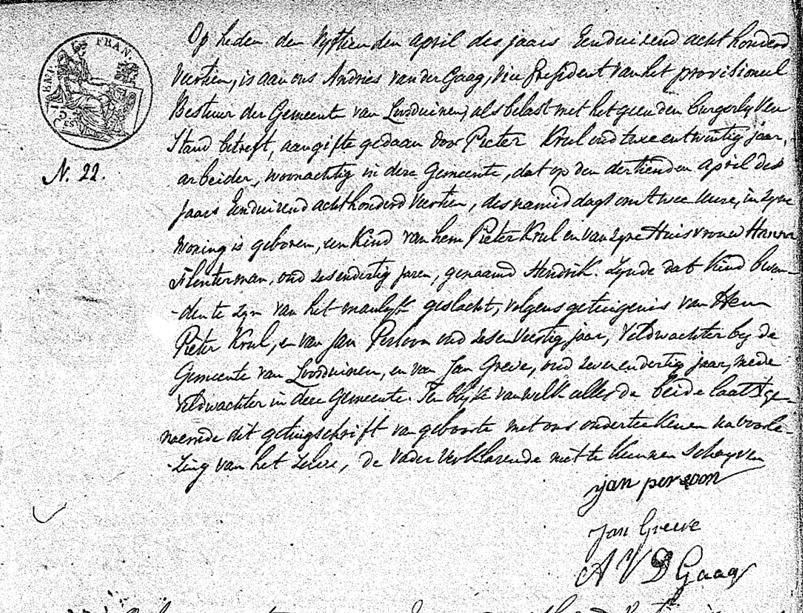 Op heden den vyftienden april des jaars Eenduizend acht honderd
Veertien, is aan ons Andries van der Gaag, Vice President van het provisioneel
Bestuur der Gemeente van Loosduinen, als belast met het geen den burgerlyken
Stand betreft, aangifte gedaan door Pieter Krul oud twee en twintig jaar,
arbeider, woonachtig in deze Gemeente, dat op den dertienden April des
jaars Eenduizend achthonderd Veertien, des namiddags om twee uure, in zyne
Woning is geboren, een Kind van hem Pieter Krul en van zyne Huisvrouw Hanna
Flenterman, oud zesendertig jaren, genaamd Hendrik. Zynde dat Kind bevon-
-den te zyn van het manlyk geslacht, volgens getuigenis van Hem
Pieter Krul, en van Jan Persoon oud zesenveertig jaar, Veldwachter by de
Gemeente van Loosduinen, en van Jan Greve, oud zevenendertig jaar, mede
Veldwachter in deze Gemeente. Ten blyke van welk alles de beide laatstge-
noemde dit getuigschrift van geboorte met ons onderteekenen na voorle-
-zing van het zelve, de Vader verklarende niet te kunnen schryven
N. 22.
jan persoon
Jan Greeve
A V D Gaag